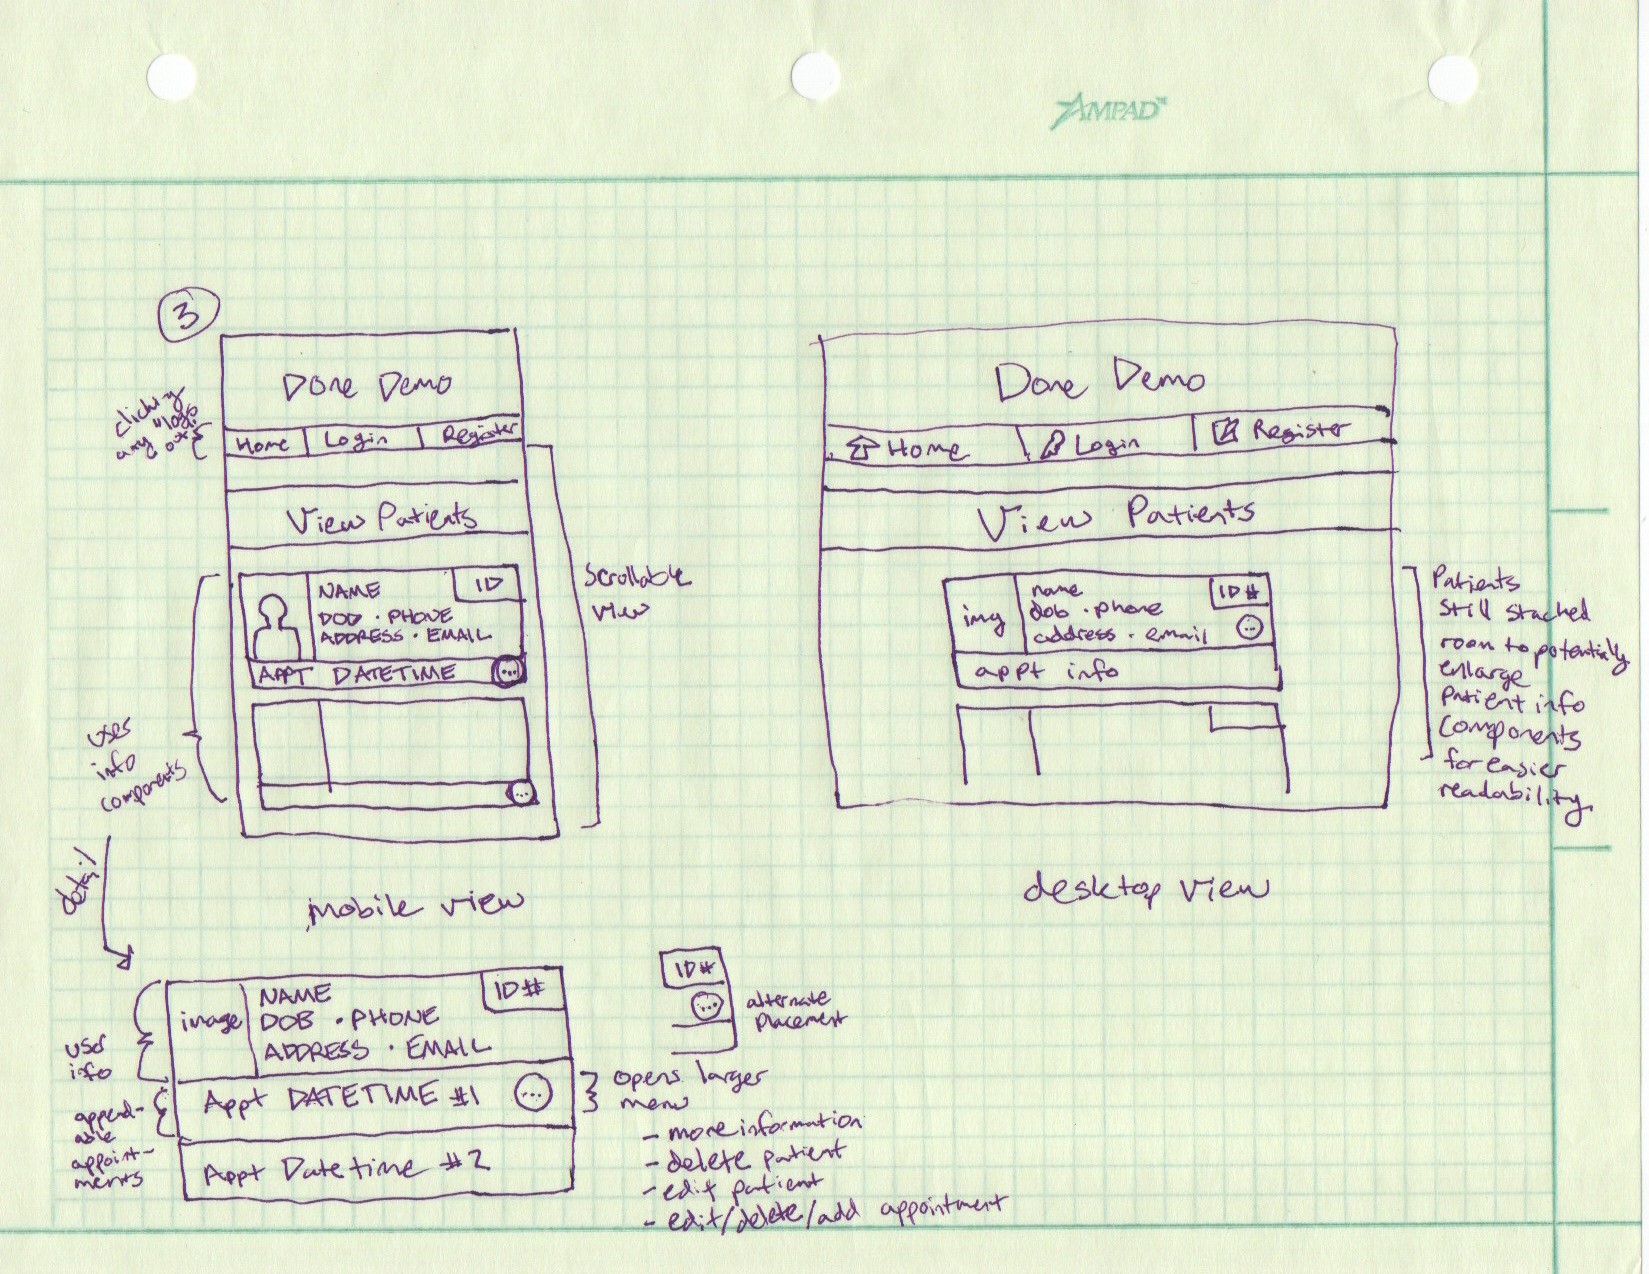 AMPAD™
3
Done Demo
clicking
any
Home | Login | Register
View Patients
NAME
ID
DOD · PHONE
ADDRESS · EMAIL
APPT DATETIME
...
...
scrollable
view
uses
info
components
detail
mobile view
Done Demo
Home
Login
Register
View Patients
img
name
dob · phone
address · email
ID#
...
appt info
Patients
still stacked
room to potentially
enlarge
patient info
components
for easier
readability
desktop view
user
info
image
NAME
DOB · PHONE
ADDRESS · EMAIL
ID#
append-
able
appoint-
ments
Appt DATETIME #1
...
Appt Datetime #2
ID#
...
alternate
placement
opens larger
menu
- more information
- delete patient
- edit patient
- edit/delete/add appointment